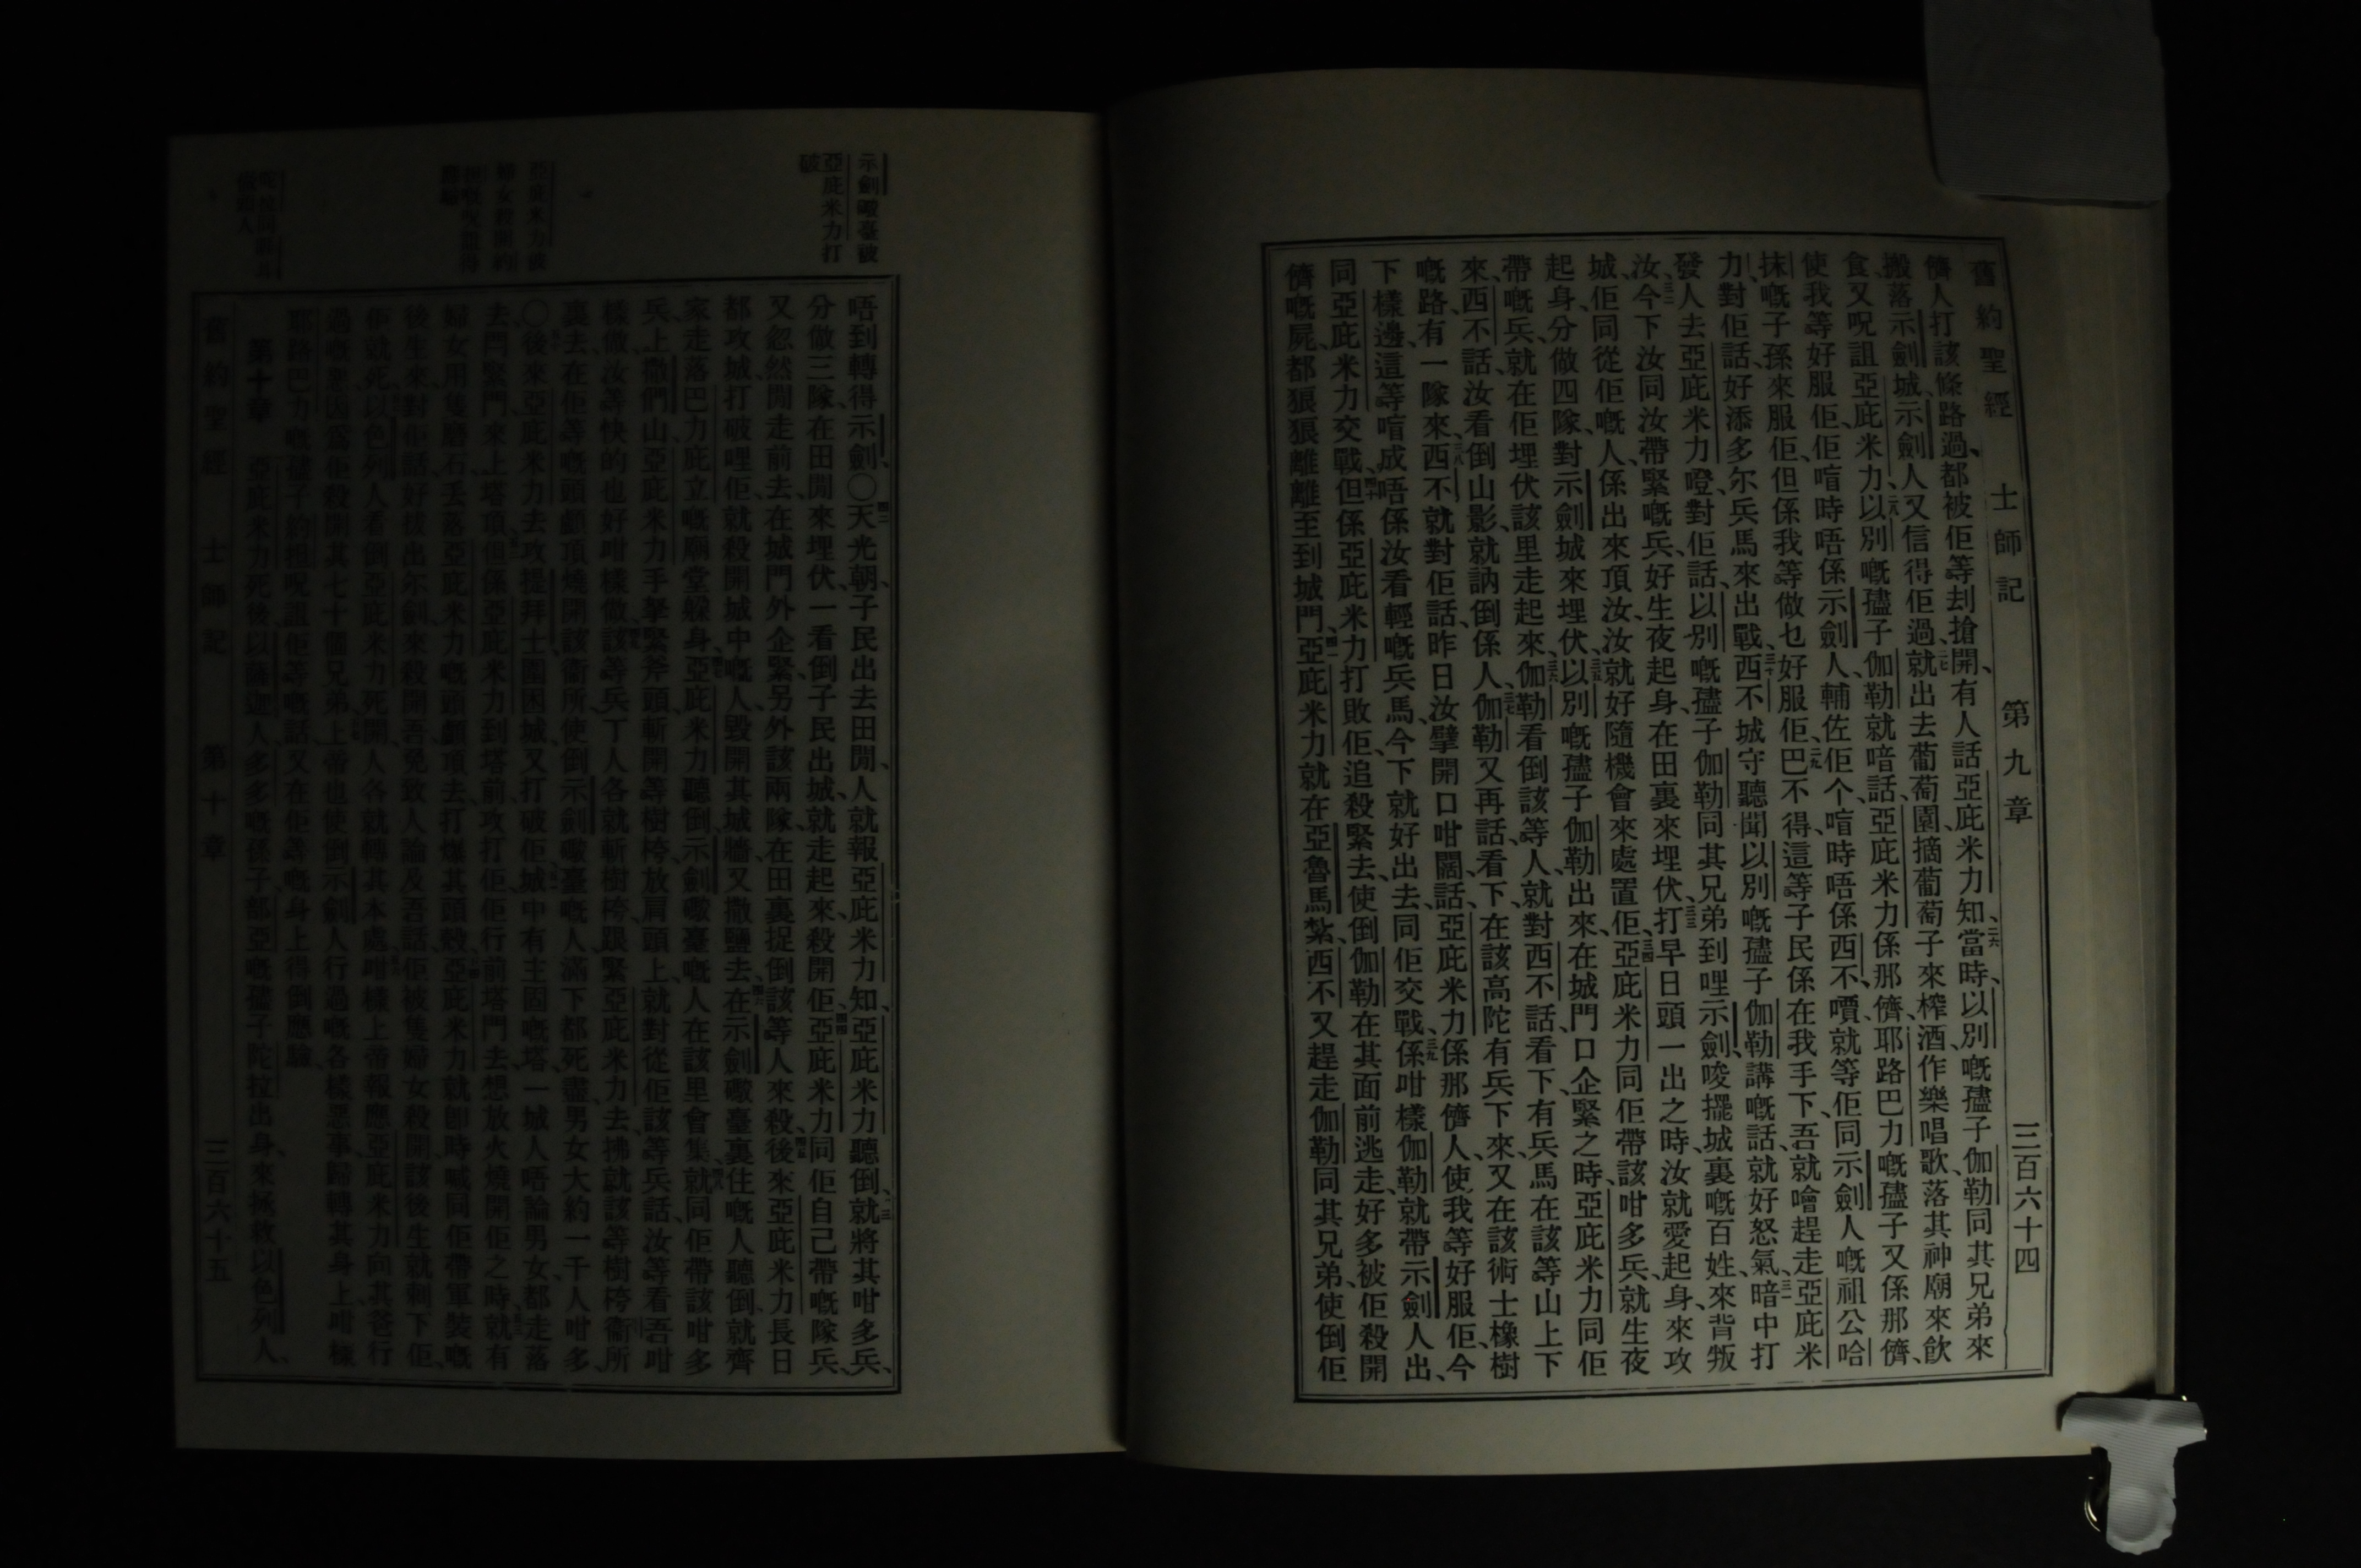 舊約聖經 士師記 第九章 三百六十四
儕人打該條路過、都被佢等刦搶開、有人話亞庇米力知、當時、以別嘅孻子伽勒同其兄弟來
搬落示劍城、示劍人又信得佢過、就出去葡萄園、摘葡萄子來榨酒、作樂唱歌、落其神廟來飮
食、又呪詛亞庇米力、以別嘅孻子伽勒就喑話、亞庇米力係那儕、耶路巴力嘅孻子又係那儕、
使我等好服佢、佢喑時唔係示劍人、輔佐佢个、喑時唔係西不嘪、就等佢同示劍人嘅祖公哈
抹嘅子孫來服佢、但係我等做乜好服佢、巴不得這等子民係在我手下、吾就噲趕走亞庇米
力、對佢話、好添多尔兵馬來出戰、西不城守聽聞以別嘅孻子伽勒講嘅話、就好怒氣、暗中打
發人去亞庇米力𡁵對佢話、以別嘅孻子伽勒同其兄弟到哩示劍、唆擺城裏嘅百姓、來背叛
汝、今下汝同汝帶緊嘅兵、好生夜起身、在田裏來埋伏、打早日頭一出之時、汝就愛起身、來攻
城、佢同從佢嘅人、係出來頂汝、汝就好隨機會來處置佢、亞庇米力同佢帶該咁多兵、就生夜
起身、分做四隊、對示劍城來埋伏、以別嘅孻子伽勒出來、在城門口企緊之時、亞庇米力同佢
帶嘅兵、就在佢埋伏該里走起來、伽勒看倒該等人、就對西不話、看下、有兵馬在該等山上下
來、西不話、汝看倒山影、就訥倒係人、伽勒又再話、看下、在該高陀有兵下來、又在該術士橡樹
嘅路、有一隊來、西不就對佢話、昨日汝擘開口咁闊話、亞庇米力係那儕人、使我等好服佢、今
下樣邊、這等喑成唔係汝看輕嘅兵馬、今下就好出去、同佢交戰、係咁樣伽勒就帶示劍人出、
同亞庇米力交戰、但係亞庇米力打敗佢、追殺緊去、使倒伽勒在其面前逃走、好多被佢殺開
儕嘅屍、都狼狼離離至到城門、亞庇米力就在亞魯馬紮、西不又趕走伽勒同其兄弟、使倒佢
示劍𡃤臺被
亞庇米力打
破
唔到轉得示劍、〇天光朝、子民出去田閒、人就報亞庇米力知、亞庇米力聽倒、就將其咁多兵、
分做三隊、在田閒來埋伏、一看倒子民出城、就走起來、殺開佢、亞庇米力同佢自己帶嘅隊兵、
又忽然閒走前去、在城門外企緊、另外該兩隊、在田裏捉倒該等人來殺、後來亞庇米力長日
都攻城、打破哩佢、就殺開城中嘅人、毀開其城牆、又撒鹽去、在示劍𡃤臺裏住嘅人聽倒、就齊
家走落巴力庇立嘅廟堂躱身、亞庇米力聽倒、示劍𡃤臺嘅人在該里會集、就同佢帶該咁多
兵、上撒們山、亞庇米力手拏緊斧頭、斬開等樹桍、放肩頭上、就對從佢該等兵話、汝等看吾咁
樣做、汝等快的也好咁樣做、該等兵丁人各就斬樹桍、跟緊亞庇米力去、拂就該等樹桍衞所
裏去、在佢等嘅頭顱頂、燒開該衞所、使倒示劍𡃤臺嘅人、滿下都死盡、男女大約一千人咁多、
〇後來亞庇米力去攻提拜士、圍困城、又打破佢、城中有主固嘅塔、一城人唔論男女、都走落
去、閂緊門、來上塔頂、但係亞庇米力到塔前、攻打佢、佢行前塔門去、想放火燒開佢之時、就有
婦女用隻磨石、丢落亞庇米力嘅頭顱頂去、打爆其頭殼、亞庇米力就卽時喊同佢帶軍裝嘅
後生來、對佢話、好拔出尔劍、來殺開吾、免致人論及吾話、佢被隻婦女殺開、該後生就刺下佢、
佢就死、以色列人看倒亞庇米力死開、人各就轉其本處、咁樣上帝報應亞庇米力向其爸行
過嘅惡、因爲佢殺開其七十個兄弟、上帝也使倒示劍人行過嘅各樣惡事、歸轉其身上、咁樣
耶路巴力嘅孻子約坦呪詛佢等嘅話、又在佢等嘅身上得倒應驗、
第十章 亞庇米力死後、以薩迦人、多多嘅孫子、部亞嘅孻子陀拉出身、來拯救以色列人、
舊約聖經 士師記 第十章 三百六十五